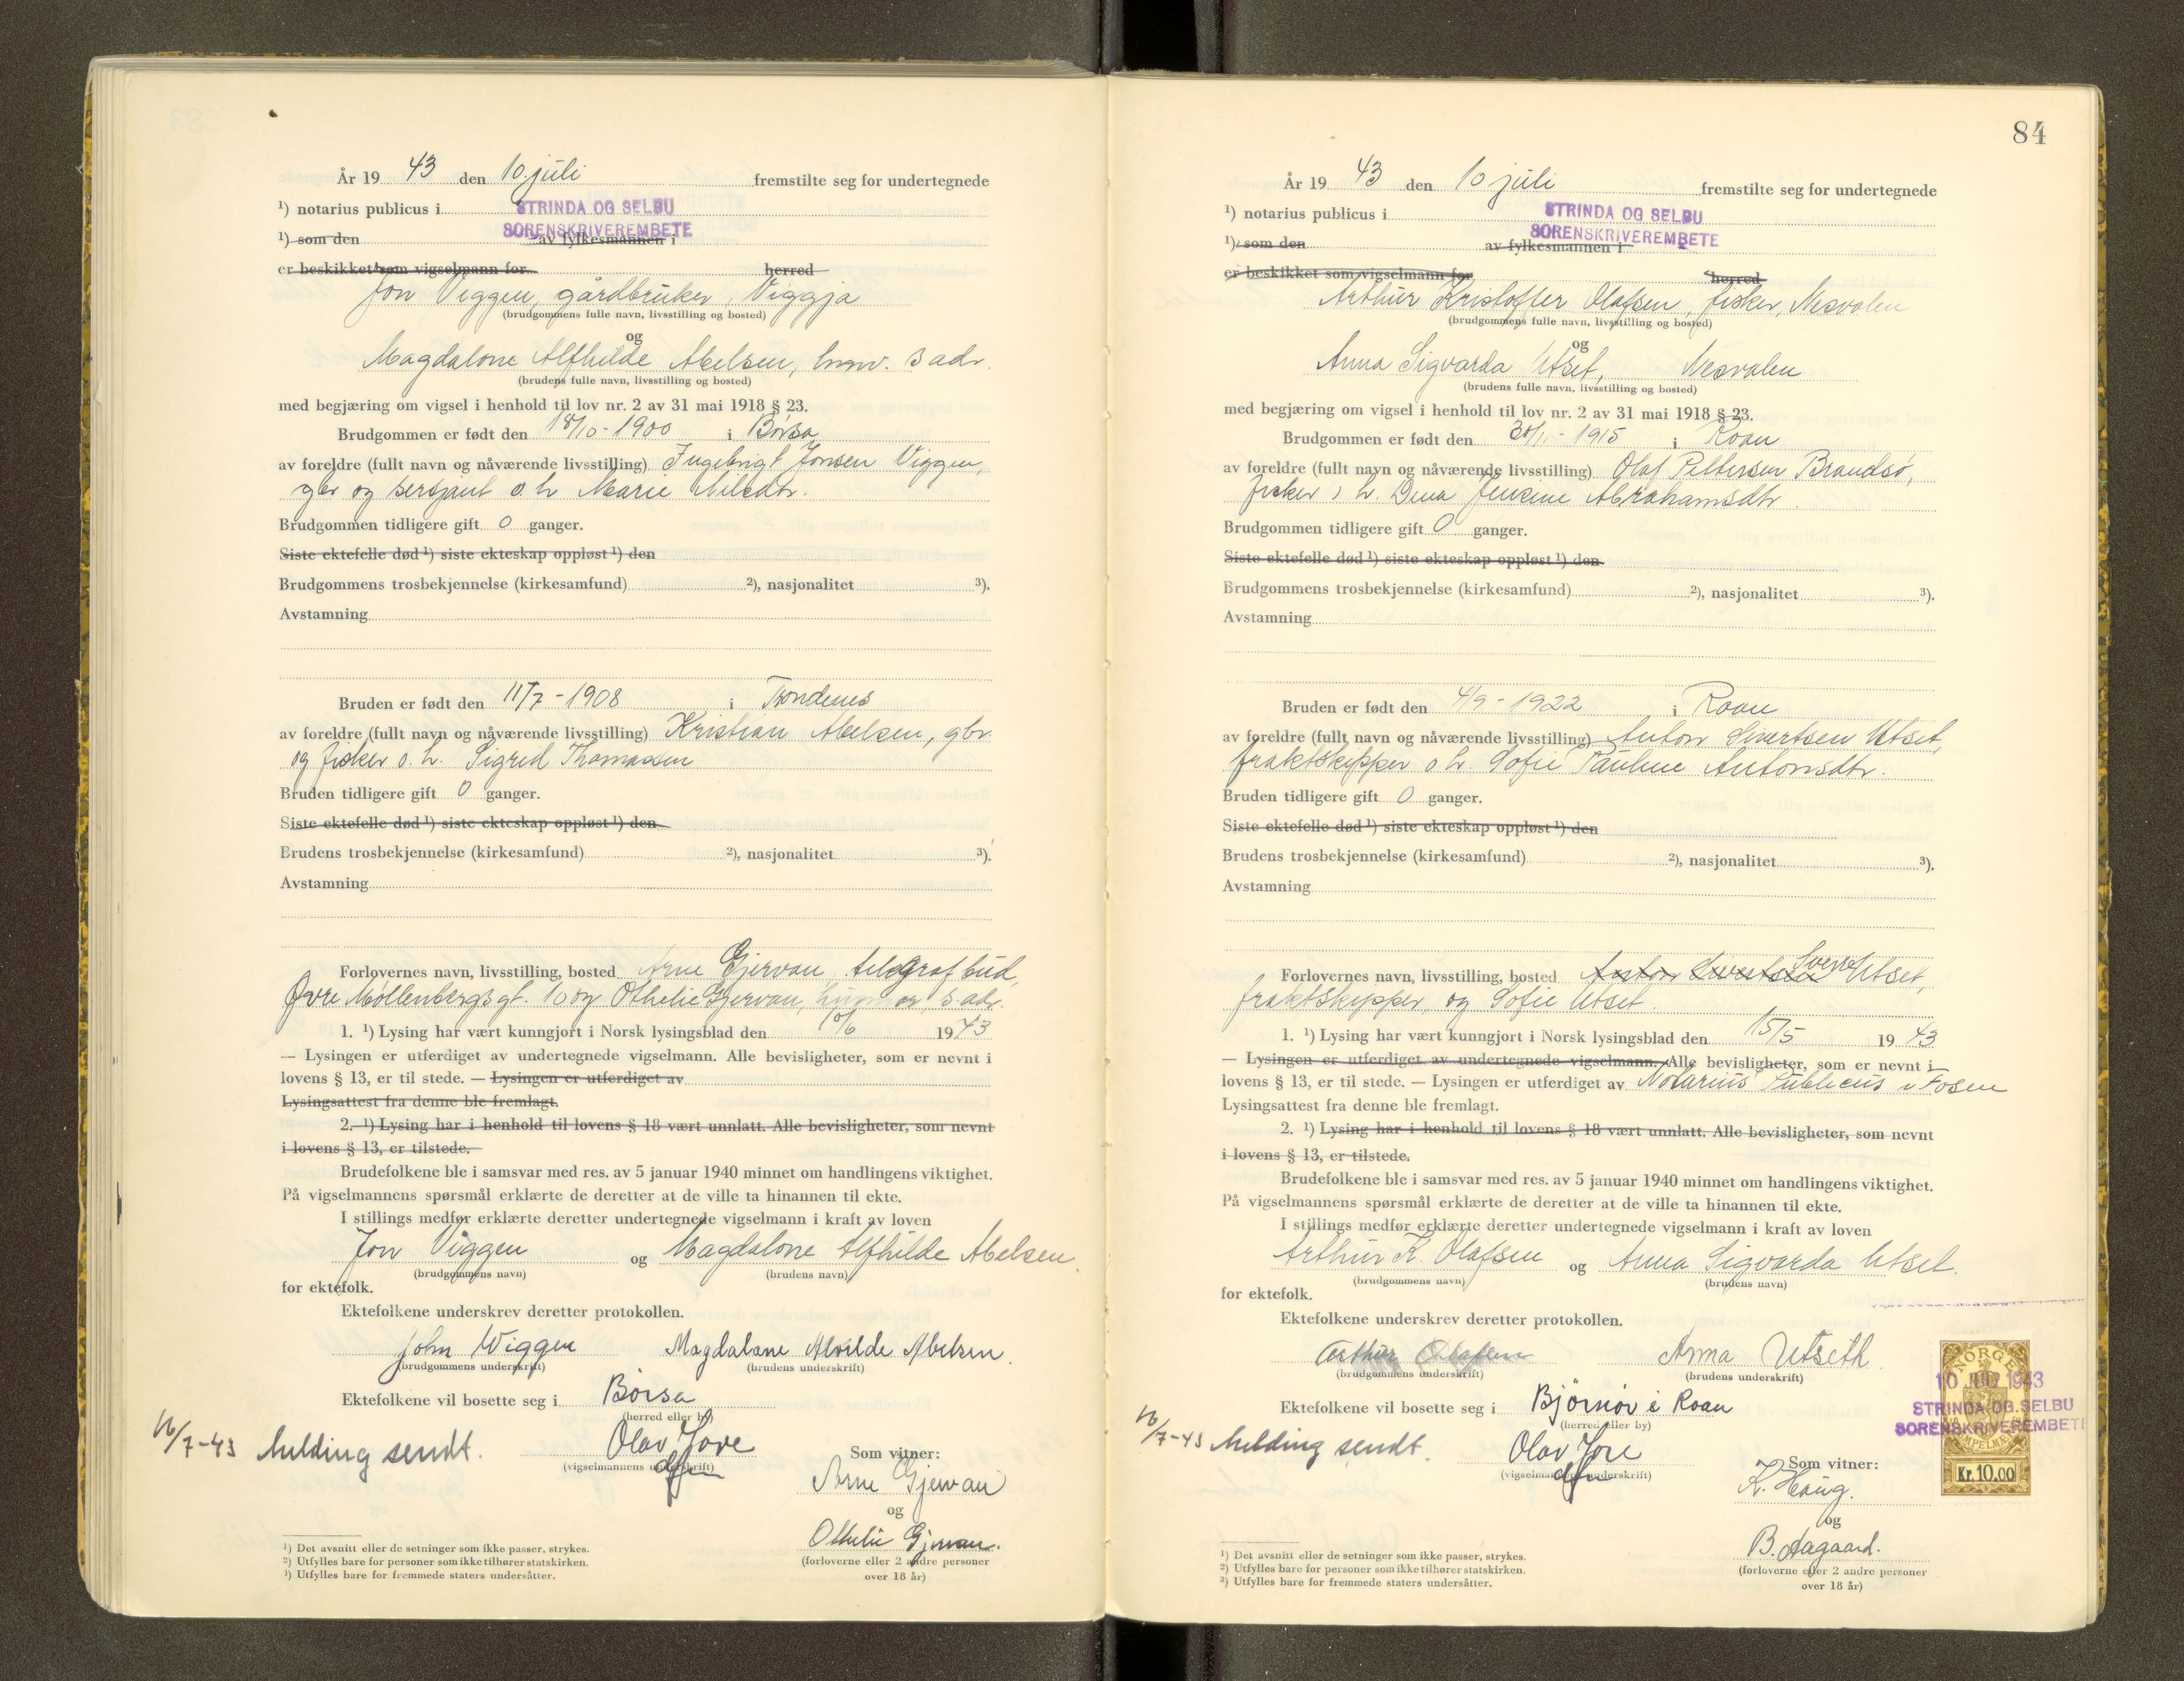 År 19 43 den 10 juli fremstilte seg for undertegnede
¹) notarius publicus i STRINDA OG SELBU
SORENSKRIVEREMBETE
¹) som den av fylkesmannen i
er beskikket som vigselmann for herred
Jon Viggen, gårdbruker, Viggja
(brudgommens fulle navn, livsstilling og bosted)
og
Magdalone Alfhilde Abelsen, hmv. s adr.
(brudens fulle navn, livsstilling og bosted)
med begjæring om vigsel i henhold til lov nr. 2 av 31 mai 1918 § 23.
Brudgommen er født den 18/10-1900 i Børsa
av foreldre (fullt navn og nåværende livsstilling) Ingebrigt Jonsen Viggen,
gbr og sersjant o. h. Marie
Brudgommen tidligere gift 0 ganger.
Siste ektefelle død ¹) siste ekteskap oppløst ¹) den
Brudgommens trosbekjennelse (kirkesamfund) ²), nasjonalitet ³).
Avstamning
Bruden er født den 11/7-1908 i Trondenes
av foreldre (fullt navn og nåværende livsstilling) Kristian Abelsen, gbr
og fisker o. h. Sigrid Thomassen
Bruden tidligere gift 0 ganger.
Siste ektefelle død ¹) siste ekteskap oppløst ¹) den
Brudens trosbekjennelse (kirkesamfund) ²), nasjonalitet ³).
Avstamning
Forlovernes navn, livsstilling, bosted Arne Gjervan, telegrafbud,
Øvre Møllenbergsgt. 10 og Othelie Gjervan, s. adr.
1. ¹) Lysing har vært kunngjort i Norsk lysingsblad den 10/6 19 43
— Lysingen er utferdiget av undertegnede vigselmann. Alle bevisligheter, som er nevnt i
lovens § 13, er til stede. — Lysingen er utferdiget av
Lysingsattest fra denne ble fremlagt.
2. ¹) Lysing har i henhold til lovens § 18 vært unnlatt. Alle bevisligheter, som nevnt
i lovens § 13, er tilstede.
Brudefolkene ble i samsvar med res. av 5 januar 1940 minnet om handlingens viktighet.
På vigselmannens spørsmål erklærte de deretter at de ville ta hinannen til ekte.
I stillings medfør erklærte deretter undertegnede vigselmann i kraft av loven
Jon Viggen og Magdalone Alfhilde Abelsen.
(brudgommens navn) (brudens navn)
for ektefolk.
Ektefolkene underskrev deretter protokollen.
John Wiggen Magdalane Alvilde Abelsen.
(brudgommens underskrift) (brudens underskrift)
Ektefolkene vil bosette seg i Børsa
(herred eller by)
16/7-43 Melding sendt. Olav Jore
(vigselmannens underskrift) Som vitner:
dfm
Arne Gjervan
og
Othelie Gjervan.
(forloverne eller 2 andre personer
over 18 år)
¹) Det avsnitt eller de setninger som ikke passer, strykes.
²) Utfylles bare for personer som ikke tilhører statskirken.
³) Utfylles bare for fremmede staters undersåtter.
84
År 19 43 den 10 juli fremstilte seg for undertegnede
¹) notarius publicus i STRINDA OG SELBU
SORENSKRIVEREMBETE
¹) som den av fylkesmannen i
er beskikket som vigselmann for herred
Arthur Kristoffer Olafsen, fisker, Nesvalen
(brudgommens fulle navn, livsstilling og bosted)
og
Anna Sigvarda Utset, Nesvalen
(brudens fulle navn, livsstilling og bosted)
med begjæring om vigsel i henhold til lov nr. 2 av 31 mai 1918 § 23.
Brudgommen er født den 30/11-1915 i Roan
av foreldre (fullt navn og nåværende livsstilling) Olaf Pettersen Brandsø,
fisker o h. Dina Jensine Abrahamsdtr.
Brudgommen tidligere gift 0 ganger.
Siste ektefelle død ¹) siste ekteskap oppløst ¹) den
Brudgommens trosbekjennelse (kirkesamfund) ²), nasjonalitet ³).
Avstamning
Bruden er født den 4/9-1922 i Roan
av foreldre (fullt navn og nåværende livsstilling) Anton Sivertsen Utset,
fraktskipper o. h. Sofie Pauline Antonsdtr.
Bruden tidligere gift 0 ganger.
Siste ektefelle død ¹) siste ekteskap oppløst ¹) den
Brudens trosbekjennelse (kirkesamfund) ²), nasjonalitet ³).
Avstamning
Forlovernes navn, livsstilling, bosted Anton Sivertsen Sverre Utset,
fraktskipper, og Sofie Utset.
1. ¹) Lysing har vært kunngjort i Norsk lysingsblad den 15/5 19 43
— Lysingen er utferdiget av undertegnede vigselmann. Alle bevisligheter, som er nevnt i
lovens § 13, er til stede. — Lysingen er utferdiget av Notarius Publicus i Fosen
Lysingsattest fra denne ble fremlagt.
2. ¹) Lysing har i henhold til lovens § 18 vært unnlatt. Alle bevisligheter, som nevnt
i lovens § 13, er tilstede.
Brudefolkene ble i samsvar med res. av 5 januar 1940 minnet om handlingens viktighet.
På vigselmannens spørsmål erklærte de deretter at de ville ta hinannen til ekte.
I stillings medfør erklærte deretter undertegnede vigselmann i kraft av loven
Arthur K. Olafsen og Anna Sigvarda Utset.
(brudgommens navn) (brudens navn)
for ektefolk.
Ektefolkene underskrev deretter protokollen.
Arthur Olafsen Anna Utseth
(brudgommens underskrift) (brudens underskrift)
NORGE
10 JULI 1943
STRINDA OG SELBU
SORENSKRIVEREMBETE
Kr. 10.00
Ektefolkene vil bosette seg i Bjørnør i Roan
(herred eller by)
16/7-43 Melding sendt. Olav Jore
(vigselmannens underskrift) Som vitner:
dfm
K. Haug.
og
B. Aagaard.
(forloverne eller 2 andre personer
over 18 år)
¹) Det avsnitt eller de setninger som ikke passer, strykes.
²) Utfylles bare for personer som ikke tilhører statskirken.
³) Utfylles bare for fremmede staters undersåtter.